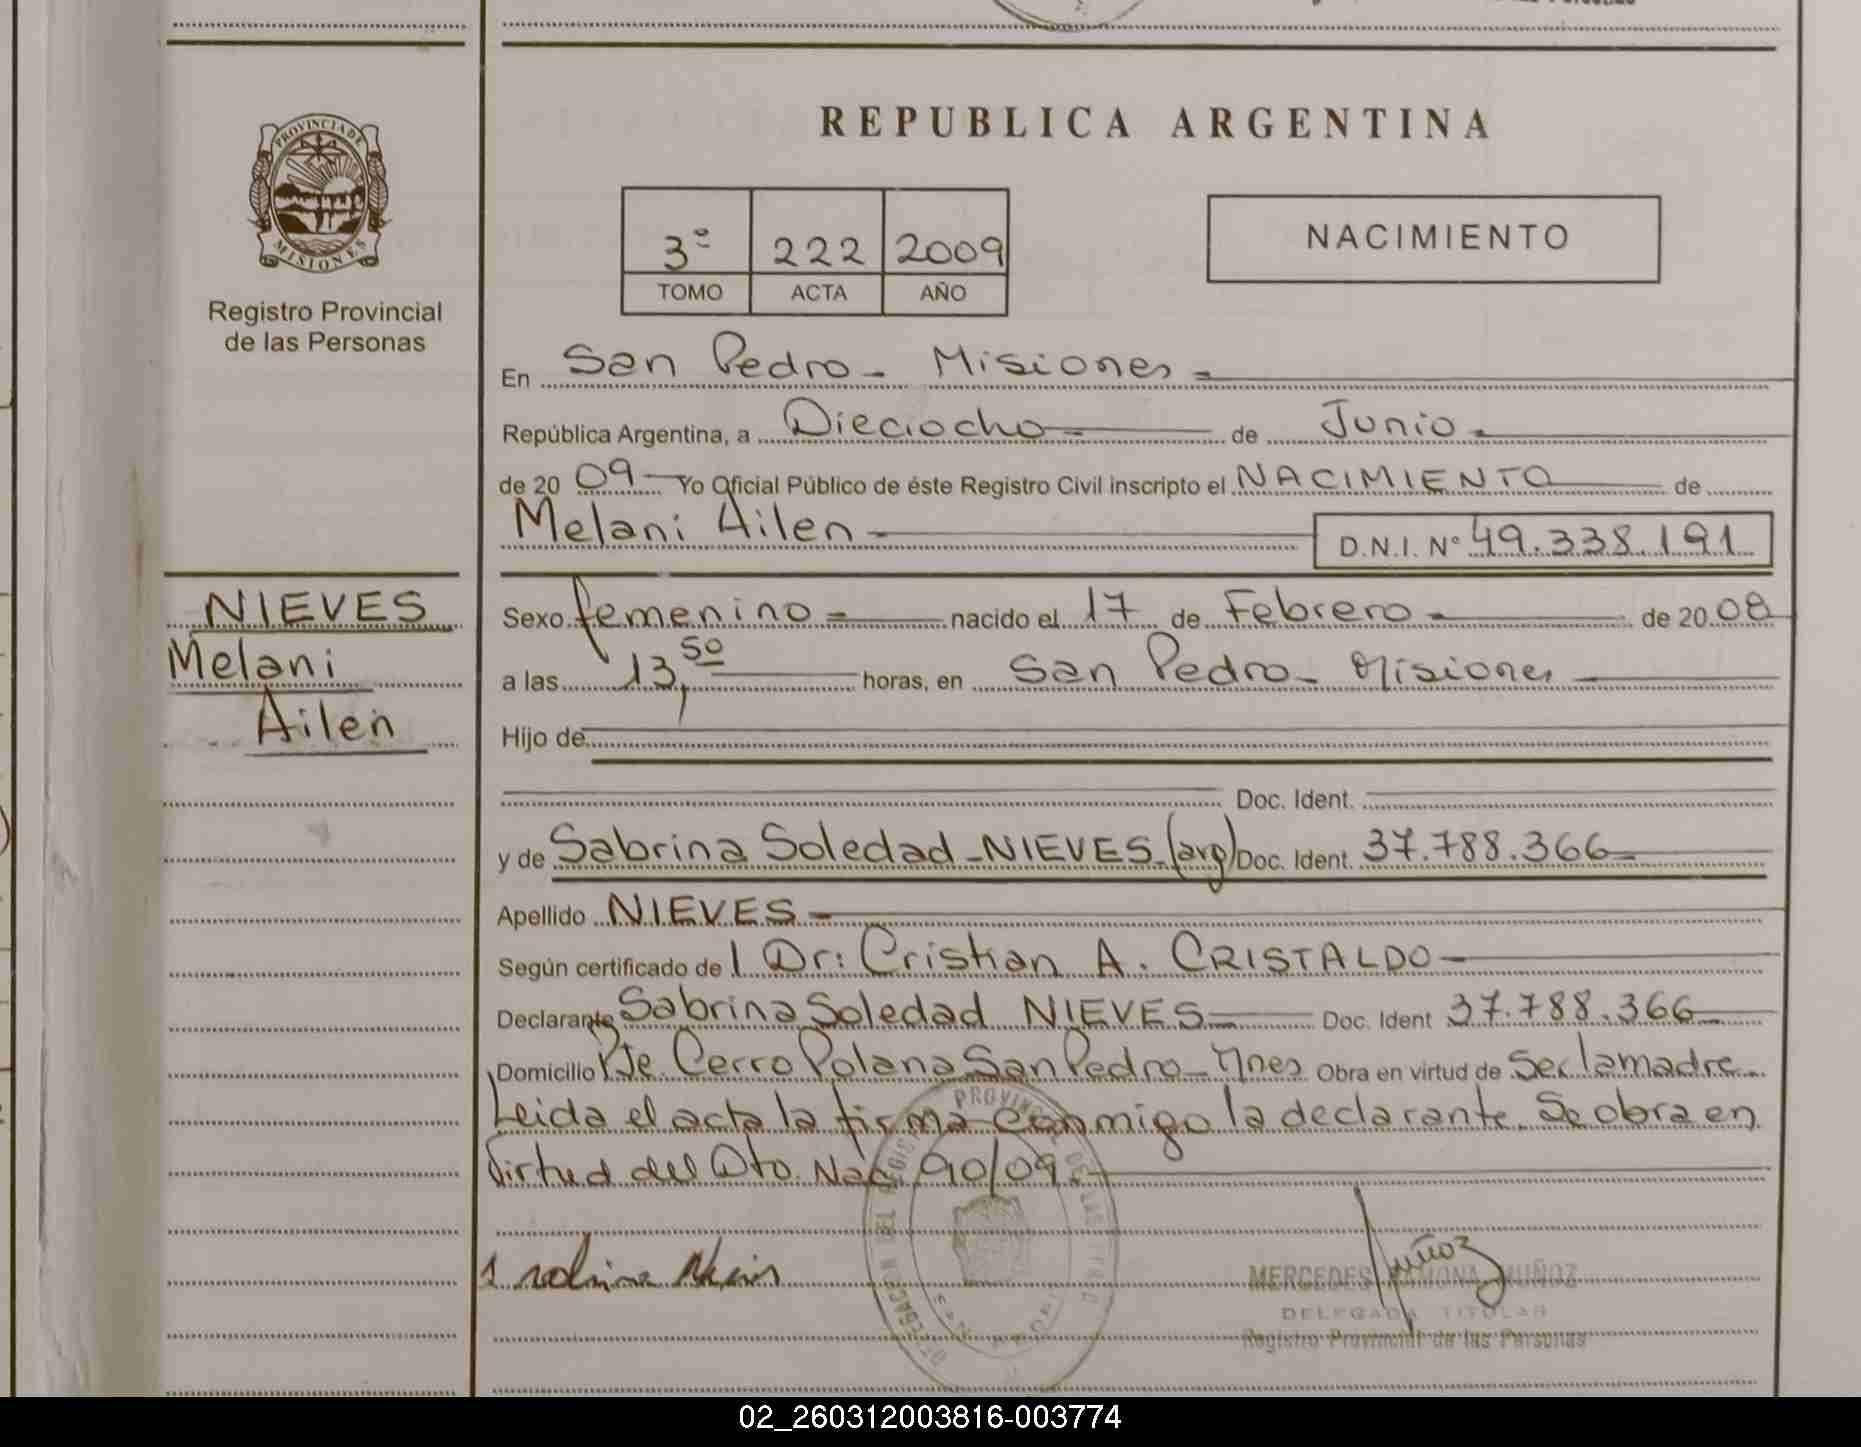 PROVINCIA DE
MISIONES
Registro Provincial
de las Personas
REPUBLICA ARGENTINA
3º 222 2009
TOMO ACTA AÑO
NACIMIENTO
En San Pedro - Misiones -
República Argentina, a Dieciocho - de Junio -
de 20 09 - Yo Oficial Público de éste Registro Civil inscripto el NACIMIENTO de
Melani Ailen -
D.N.I. Nº 49.338.191
NIEVES
Melani
Ailen
Sexo femenino - nacido el 17 de Febrero - de 20 08
a las 13,50 horas, en San Pedro - Misiones
Hijo de
Doc. Ident.
y de Sabrina Soledad - NIEVES - (arg) Doc. Ident. 37.788.366 -
Apellido NIEVES -
Según certificado de l Dr: Cristian A. CRISTALDO -
Declarante Sabrina Soledad NIEVES - Doc. Ident 37.788.366 -
Domicilio Pje. Cerro Polana San Pedro - Mnes Obra en virtud de Ser la madre -
Leida el acta la firma conmigo la declarante. Se obra en
Virtud del Dto. Nac. 90/09. -
Muñoz
MERCEDES RAMONA MUÑOZ
DELEGADA TITULAR
Registro Provincial de las Personas
02_260312003816-003774